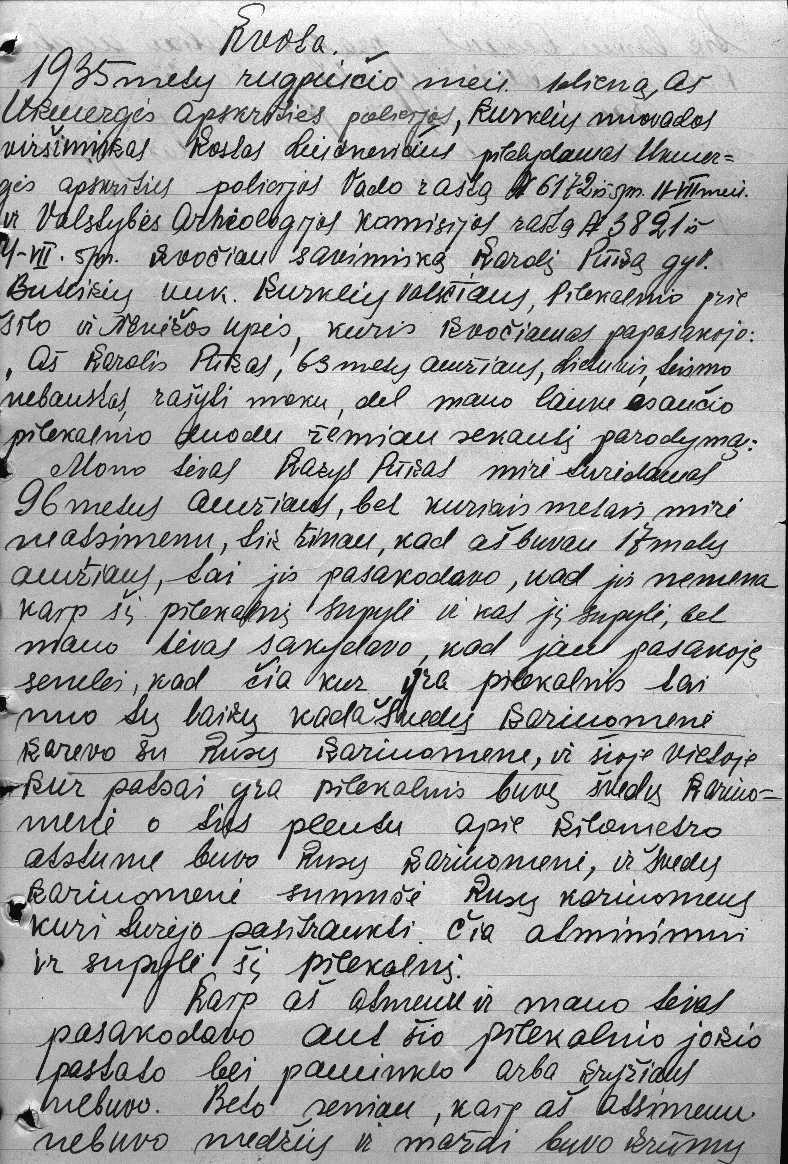 Kvota.
1935 metų rugpiučio mėn. dieną, Aš
Ukmergės apskrities policijos, Kurklių nuovados
viršininkas Kostas pildydamas Ukmer=
gės apskrities policijos Vado raštą № 6172 iš š/m. 11-VIII mėn.
ir Valstybės Archeologijos Komisijos raštą № 3821 iš
š/m. kvočiau savininką Karolį Pūšą gyv.
vnk. Kurklių valsčiaus, Pilekalnio prie
Šilo ir upės, kuris kvočiamas papasakojo:
„Aš Karolis Pūšas, 63 metų amžiaus, lietuvis, teismo
nebaustas, rašyti moku, dėl mano lauke esančio
pilekalnio duodu žemiau sekantį parodymą:
Mano tėvas Kazys Pūšas mirė turėdamas
96 metus amžiaus, bet kuriais metais mirė
neatsimenu, tik žinau, kad aš buvau 17 metų
amžiaus, tai jis pasakodavo, kad jis nemena
kaip šį pilekalnį supylė ir kas jį supylė, bet
mano tėvas sakydavo, kad jau pasakoję
senelei, kad čia kur yra pilekalnis tai
nuo tų laikų kada Švedų Kariuomenė
karevo su Rusų Kariuomene, ir šioje vietoje
kur patsai yra pilekalnis buvę švedų Kariuo=
menė o ties plentu apie kilometro
atstume buvo Rusų Kariuomenė, ir švedų
Kariuomenė sumušė Rusų kariuomenę
kuri turėjo pasitraukti. Čia atminimui
ir supylė šį pilekalnį.
Kaip aš atmenu ir mano tėvas
pasakodavo ant šio pilekalnio jokio
pastato bei paminklo arba kryžiaus
nebuvo. Beto seniau, kaip aš atsimenu
nebuvo medžių ir maži buvo krūmų